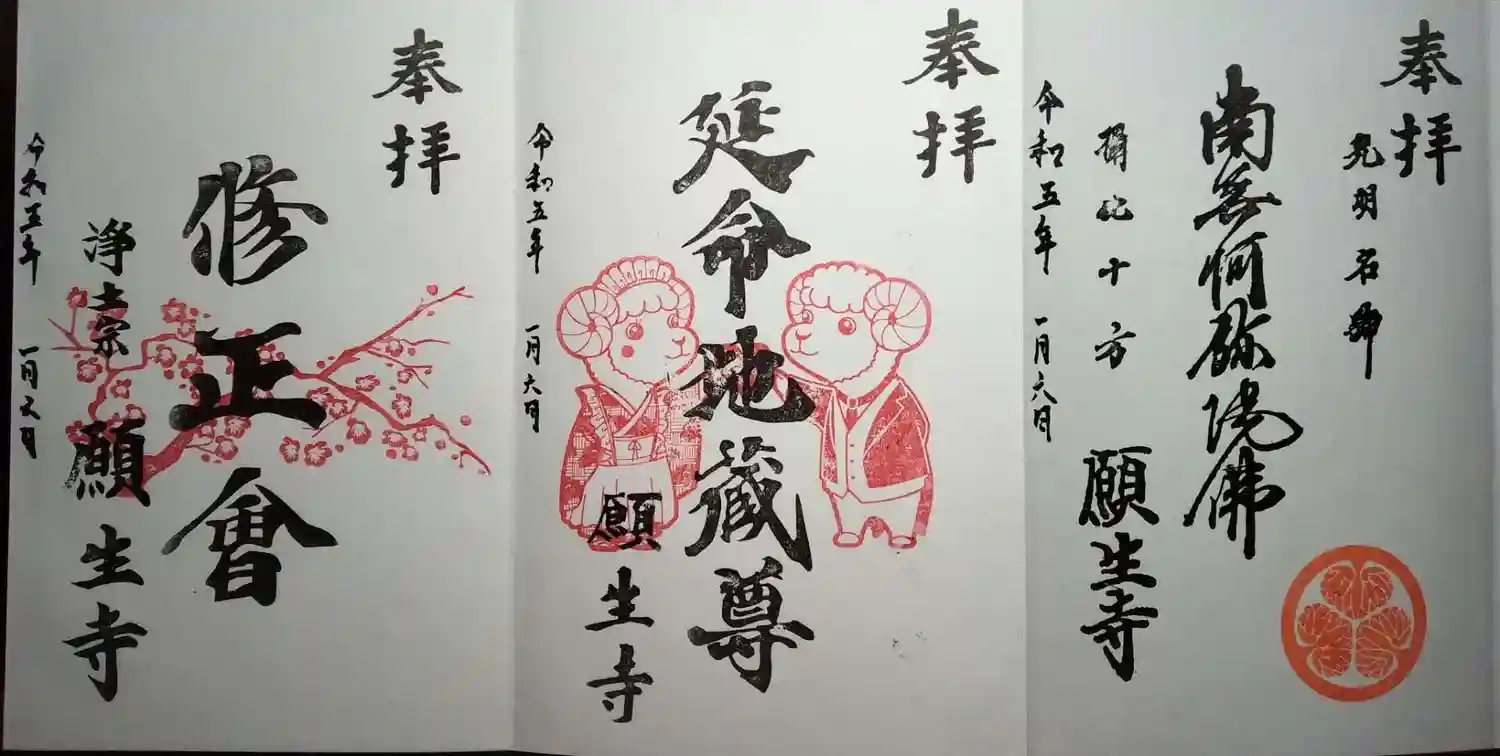 奉拝
光明名號
南無阿弥陀佛
攝化十方
願生寺
令和五年 一月六日
奉拝
延命地蔵尊
願生寺
令和五年 一月六日
奉拝
修正會
浄土宗 願生寺
令和五年 一月六日